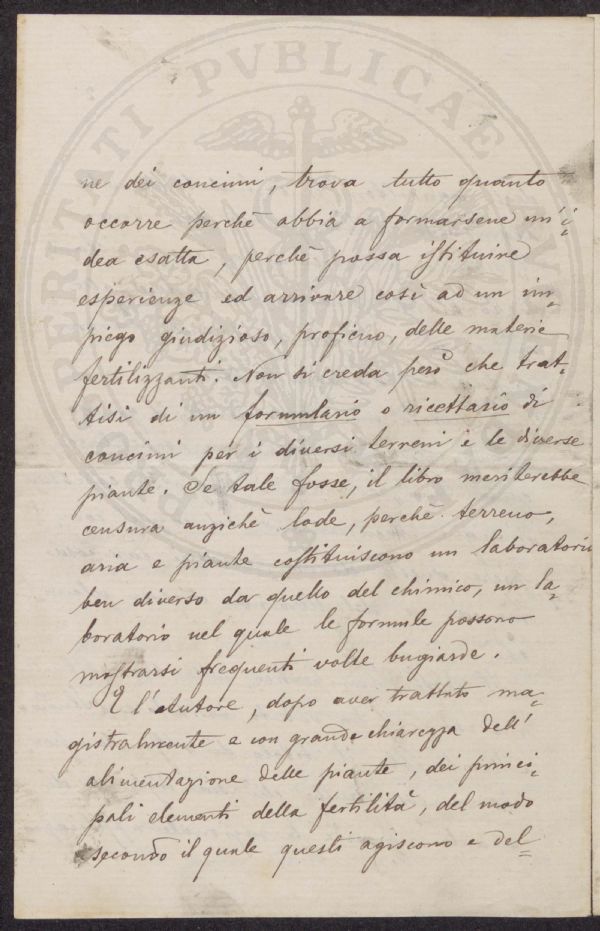 PROSPERITATI PVBLICAE
ne dei concimi, trova tutto quanto
occorre perchè abbia a formarsene un'i=
dea esatta, perchè possa istituire
esperienze ed arrivare così ad un im=
piego giudizioso, proficuo, delle materie
fertilizzanti. Non si creda però che trat=
tisi di un formulario o ricettario di
concimi per i diversi terreni e le diverse
piante. Se tale fosse, il libro meriterebbe
censura anzichè lode, perchè terreno,
aria e piante costituiscono un laboratorio
ben diverso da quello del chimico, un la=
boratorio nel quale le formule possono
mostrarsi frequenti volte bugiarde.
E l'Autore, dopo aver trattato ma=
gistralmente e con grande chiarezza dell'
alimentazione delle piante, dei princi=
pali elementi della fertilità, del modo
secondo il quale questi agiscono e del=